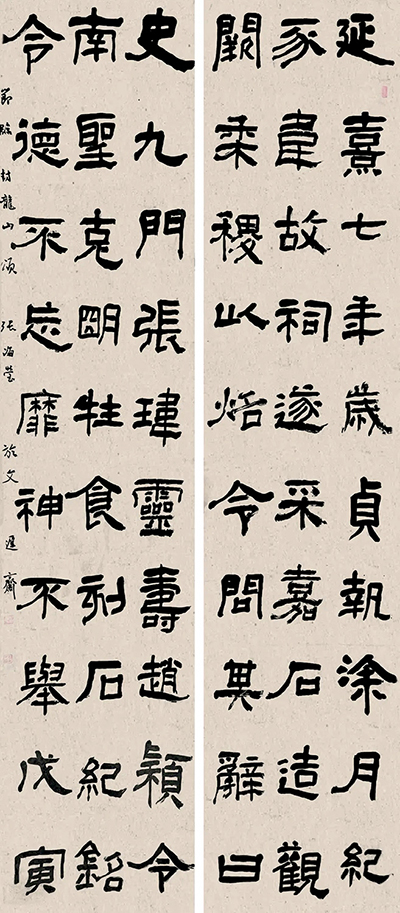 延熹七年歲貞執涂月紀
豕韋故祠遂采嘉石造觀
闕黍稷以令問其辭曰
史九門張瑋靈壽趙穎令
南聖克明牲食刻石紀銘
令德不忘靡神不舉戊寅
節臨封龍山頌 張海瑩 於文齋